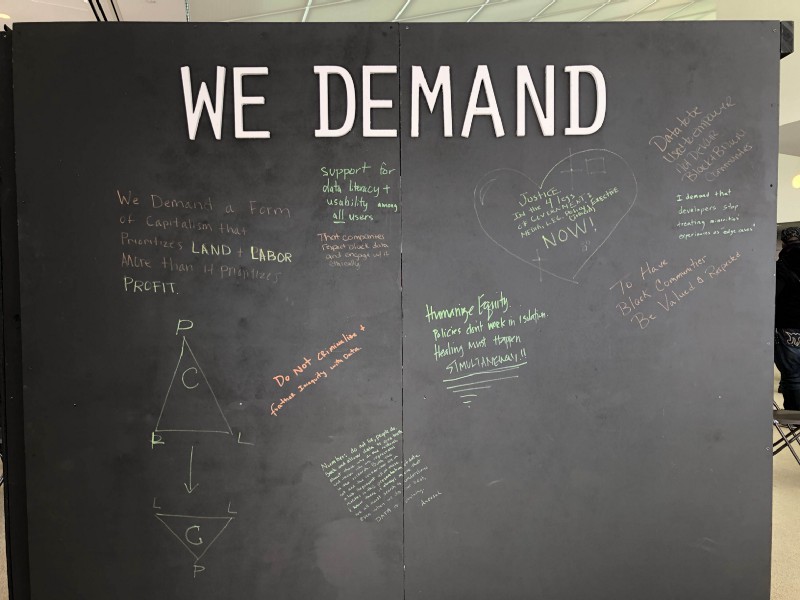 WE DEMAND
We Demand a Form
of Capitalism that
Prioritizes LAND + LABOR
More than it Prioritizes
PROFIT.
support for
data literacy +
usability among
all users
That companies
Respect black data
and engage w/ it
ethically
JUSTICE
IN the 4 legs
OF GOVERNMENTS
NOW!
Data to be
Used to empower
not Dictate
Black + Brown
Communities
I demand that
developers stop
treating minorities'
experiences as "edge cases"
To Have
Black Communities
Be Valued & Respected
Humanize Equity.
Policies dont work in isolation.
Healing must Happen
SIMULTANEOUSLY!!
Do Not Criminalize +
further Inequity with Data.
P
C
L
L
L
C
P
Numbers do not lie, people do